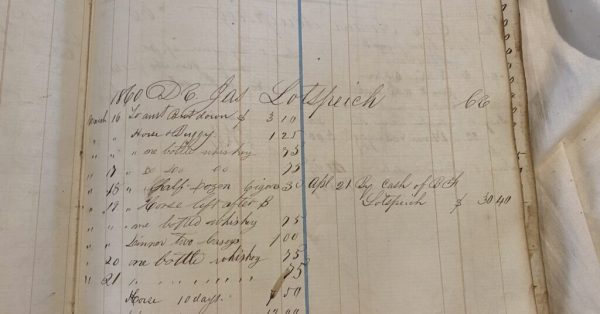 1860 Dr Jas Lotspeich Cr
March 16 To amt Brot down $ 3 10
" " Horse & Buggy 1 25
" " " one bottle whiskey 75
" 17 " do do do 75
" 18 " Half dozen Cigars 30 Apl 21 By Cash of
" 19 " Horse left after B Lotspeich $ 30.40
" " " one bottle whiskey 75
" " Dinner two 1 00
" 20 one bottle whiskey 75
" 21 " " " " " " " 75
Horse 10 days " 7 50